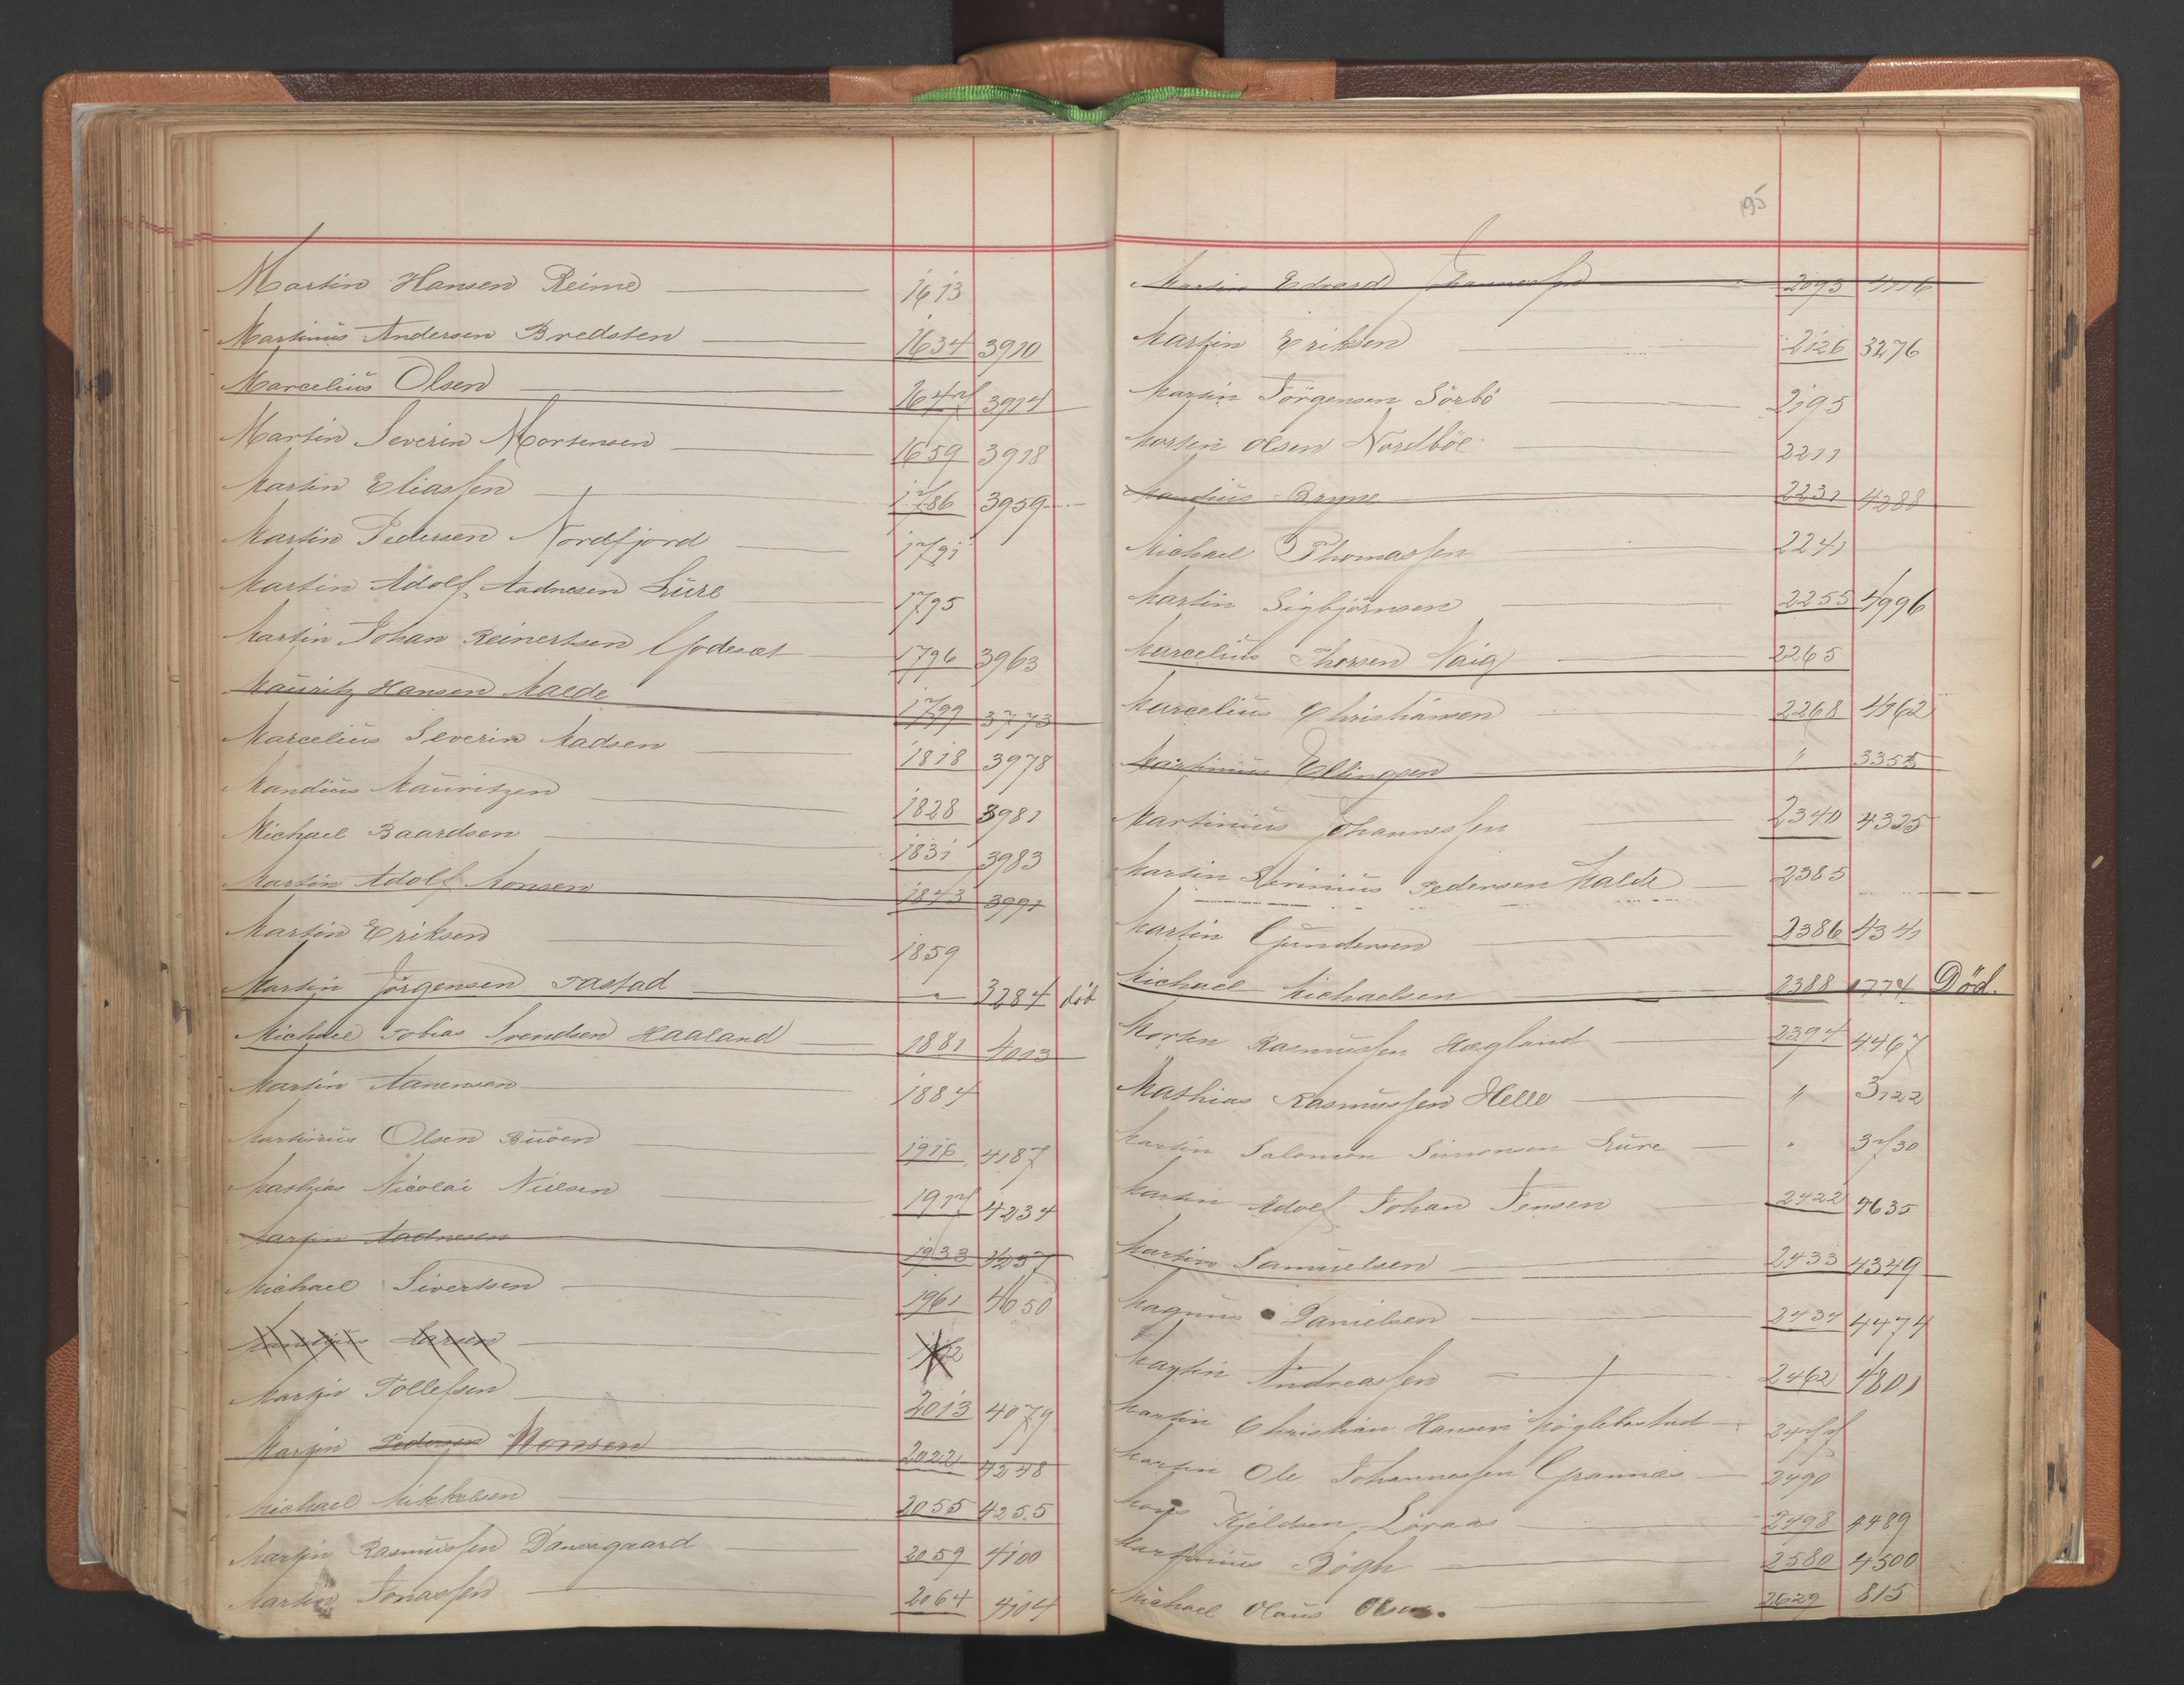 Martin Hansen Reime 1613
Martinus Andersen Bredsten 1634 3910
Marcelius Olsen 1647 3914
Martin Severin Mortensen 1659 3918
Martin Eliassen 1786 3959
Martin Pedersen Nordfjord 1791
Martin Adolf Aadnesen Lure 1795
Martin Johan Reinertsen Godeset 1796 3963
Mauritz Hansen Malde 1799 3773
Marcelius Severin Madsen 1818 3978
Mandius Mauritzen 1828 3981
Michael Baardsen 1831 3983
Martin Adolf Monsen 1843 3991
Martin Eriksen 1859
Martin Jörgensen Tastad " 3284 död
Michael Tobias Svendsen Haaland 1881 4013
Martin Aanensen 1884
Martinius Olsen Buöen 1916 4187
Mathias Nicolai Nielsen 1917 4234
Martin Aadnesen 1933 4237
Michael Sivertsen 1961 4050
Larsen
Martin Tollefsen 2013 4079
Martin Pedersen Monsen 2022 4248
Michael Mikkelsen 2055 4255
Martin Rasmussen Damsgaard 2059 4100
Martin Jonassen 2064 4104
195
Martin Edvard Johannessen 2093 4116
Martin Eriksen 2126 3276
Martin Jörgensen Sörbö 2195
Morten Olsen Nordböe 2211
Mandius Bryne 2231 4288
Michael Thomassen 2241
Martin Sigbjörnsen 2255 4996
Marcelius Thorsen Vaig 2265
Marcelius Christiansen 2268 4962
Martinius Ellingsen " 3355
Martinius Johannessen 2340 4325
Martin Serinius Pedersen Malde 2385
Martin Gundersen 2386 4341
Michael Michaelsen 2388 1774 Död.
Morten Rasmussen Hægland 2394 4467
Mathias Rasmussen Helle " 3122
Martin Salomon Simonsen Lure " 3730
Martin Adolf Johan Jensen 2422 4635
Martin Samuelsen 2433 4349
Magnus Danielsen 2434 4474
Martin Andreassen 2462 4801
Martin Christian Hansen Möglebustad 2477
Martin Ole Johannessen Grannes 2490
Mons Kjeldsen Löraas 2498 4489
Martinius Bögh 2580 4500
Michael Olaus Olsen. 2629 815